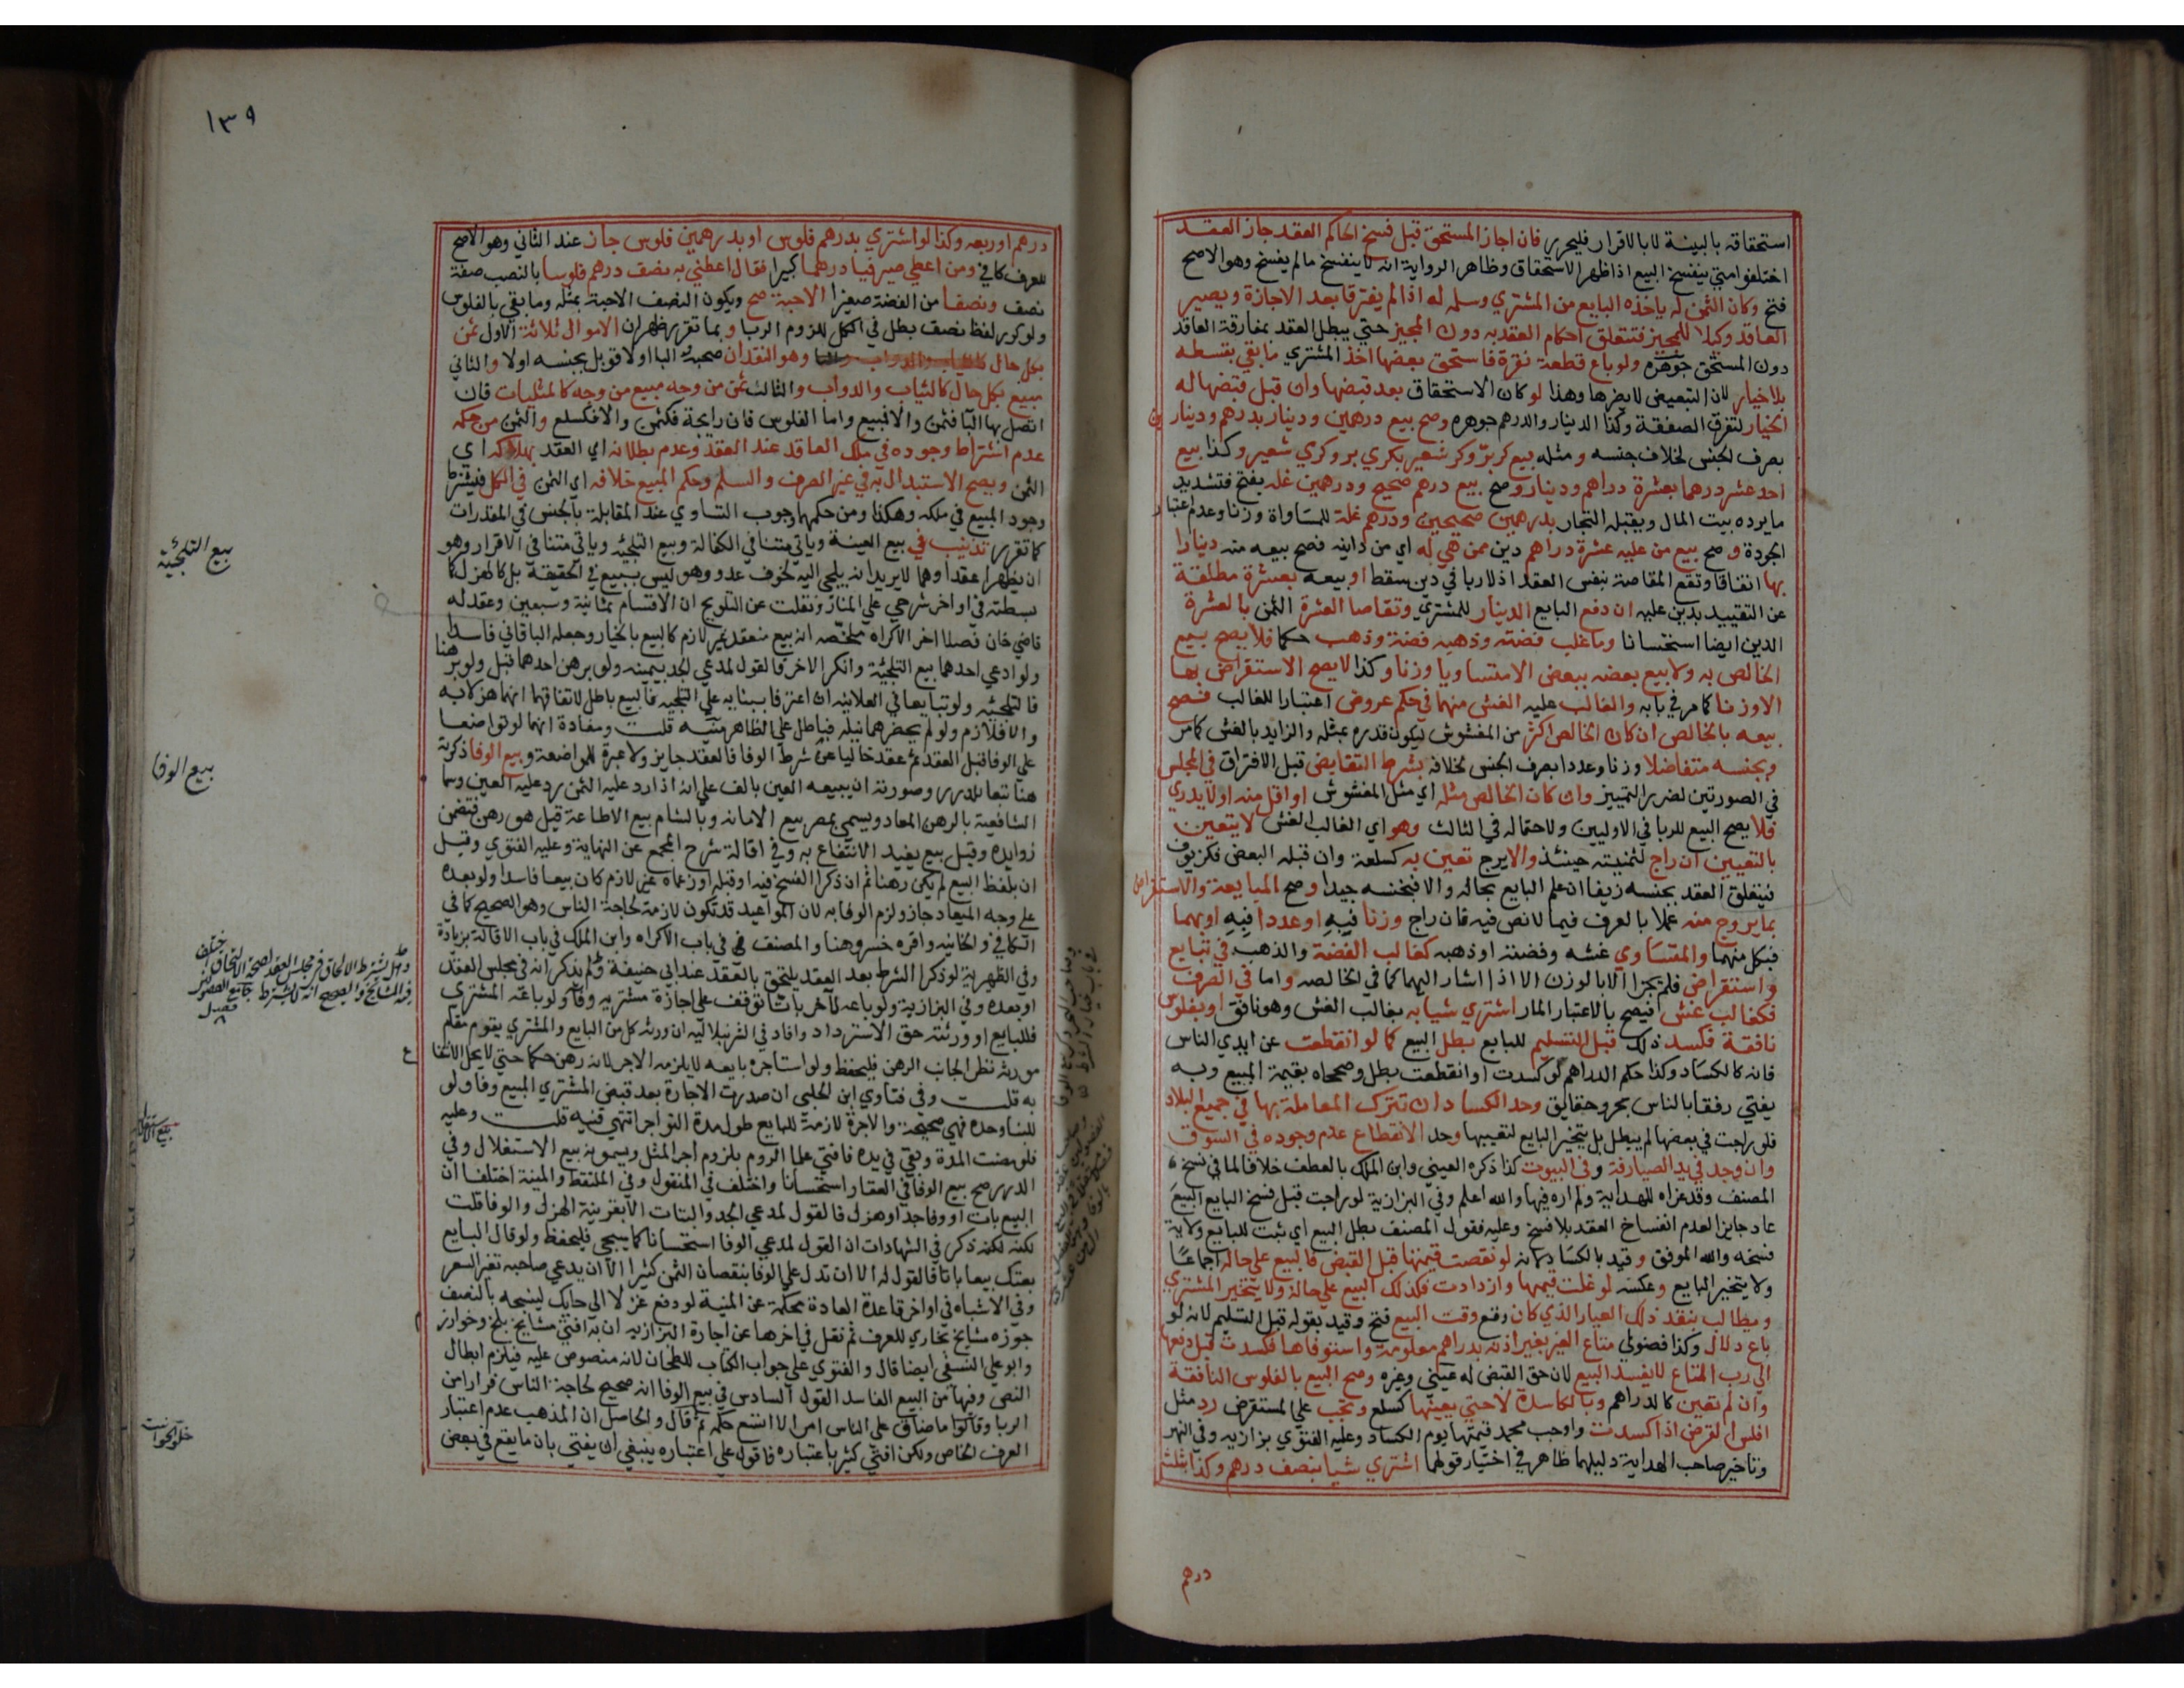 استحقاقه بالبينة لا بالاقرار فليحرر فان اجاز المستحق قبل فسخ الحاكم العقد جاز العقد
اختلفوا متي ينفسخ البيع اذا ظهر الاستحقاق وظاهر الرواية انه لا ينفسخ مالم يفسخ وهو الاصح
فتح وكان الثمن له ياخذه البايع من المشتري وسلمه له اذا لم يفترقا بعد الاجازة ويصير
العاقد وكيلا للمجيز فتتعلق احكام العقد به دون المجيز حتي يبطل العقد بمفارقة العاقد
دون المستحق جوهره ولو باع قطعة نقرة فاستحق بعضها اخذ المشتري ما بقي بقسطه
بلا خيار لان التبعيض لا يضرها وهذا لو كان الاستحقاق بعد قبضها وان قبل قبضها له
الخيار لتفرق الصفقة وكذا الدينار والدرهم جوهره وصح بيع درهمين ودينار بدرهم ودينارين
بصرف الجنس لخلاف جنسه ومثله بيع كر بر وكر شعير بكري بر وكري شعير وكذا بيع
احد عشر درهما بعشرة دراهم ودينار وصح بيع درهم صحيح ودرهمين غلة بفتح فتشديد
ما يرده بيت المال ويقبله التجار بدرهمين صحيحين ودرهم غلة للمساواة وزنا وعدم اعتبار
الجودة وصح بيع من عليه عشرة دراهم دين ممن هي له اي من داينه فصح بيعه منه دينارا
بها اتفاقا وتقع المقاصة بنفس العقد اذ لا ربا في دين سقط او بيعه بعشرة مطلقة
عن التقييد بدين عليه ان دفع البايع الدينار للمشتري وتقاصا العشرة الثمن بالعشرة
الدين ايضا استحسانا وما غلب فضته وذهبه فضة وذهب حكما فلا يصح بيع
الخالص به ولا بيع بعضه ببعض الا متساويا وزنا وكذا لا يصح الاستقراض بها
الا وزنا كما مر في بابه والغالب عليه الغش منهما في حكم عروض اعتبارا للغالب فصح
بيعه بالخالص ان كان الخالص اكثر من المغشوش ليكون قدره بمثله والزايد بالغش كما مر
وبجنسه متفاضلا وزنا وعددا بصرف الجنس لخلافه بشرط التقابض قبل الافتراق في المجلس
في الصورتين لضرر التمييز وان كان الخالص مثله اي مثل المغشوش او اقل منه او لا يدري
فلا يصح البيع للربا في الاوليين ولاحتماله في الثالث وهو اي الغالب الغش لا يتعين
بالتعيين ان راج لثمنيته حينئذ والا يرج تعين به كسلعة وان قبله البعض فكزيوف
فيتعلق العقد بجنسه زيفا ان علم البايع بحاله والا فبجنسه جيدا وصح المبايعة والاستقراض
بما يروج منه عملا بالعرف فيما لا نص فيه فان راج وزنا فبه او عددا فبه او بهما
فبكل منهما والمتساوي غشه وفضته او ذهبه كغالب الفضة والذهب في تبايع
واستقراض فلم يجز الا بالوزن الا اذا اشار اليهما كما في الخالصه واما في الصرف
فكغالب غش فيصح بالاعتبار المار اشتري شيا به بغالب الغش وهو نافق او بفلوس
نافقة فكسد ذلك قبل التسليم للبايع بطل البيع كما لو انقطعت عن ايدي الناس
فانه كالكساد وكذا حكم الدراهم لو كسدت او انقطعت بطل وصححاه بقيمة المبيع وبه
يفتي رفقا بالناس بحر وحقايق وحد الكساد ان تترك المعاملة بها في جميع البلاد
فلو راجت في بعضها لم يبطل بل يتخير البايع لتعيبها وحد الانقطاع عدم وجوده في السوق
وان وجد في يد الصيارفة وفي البيوت كذا ذكره العيني وابن الملك بالعطف خلافا لما في نسخ
المصنف وقد عزاه للهداية ولم اره فيها والله اعلم وفي البزازية لو راجت قبل فسخ البايع البيع
عاد جايزا لعدم انفساخ العقد بلا فسخ وعليه فقول المصنف بطل البيع اي ثبت للبايع ولاية
فسخه والله الموفق وقيد بالكساد لانه لو نقصت قيمتها قبل القبض فالبيع علي حاله اجماعا
ولا يتخير البايع وعكسه لو غلت قيمتها وازدادت فكذلك البيع علي حاله ولا يتخير المشتري
ويطالب بنقد ذلك العيار الذي كان وقع وقت البيع فتح وقيد بقوله قبل التسليم لانه لو
باع دلال وكذا فضولي متاع الغير بغير اذنه بدراهم معلومة واستوفاها فكسدت قبل دفعها
الي رب المتاع لا يفسد البيع لان حق القبض له عيني وغيره وصح البيع بالفلوس النافقة
وان لم تعين كالدراهم وبالكاسدة لا حتي يعينها كسلع ويجب علي المستقرض رد مثل
افلس القرض اذا كسدت واوجب محمد قيمتها يوم الكساد وعليه الفتوي بزازيه وفي النهر
وتاخير صاحب الهداية دليلهما ظاهر في اختيار قولهما اشتري شيا بنصف درهم وكذا بثلث
درهم
١٣٩
درهم او ربعه وكذا لو اشتري بدرهم فلوس او بدرهمين فلوس جاز عند الثاني وهو الاصح
للعرف كافي ومن اعطي صيرفيا درهما كبيرا فقال اعطني به نصف درهم فلوسا بالنصب صفة
نصف ونصفا من الفضة صغيرا الا حبة صح ويكون النصف الا حبة بمثله وما بقي بالفلوس
ولو كرر لفظ نصف بطل في الكل للزوم الربا وبما تقرر ظهر ان الاموال ثلاثة الاول ثمن
بكل حال وهو النقدان صحبته البا او لا قوبل بجنسه او لا والثاني
مبيع بكل حال كالثياب والدواب والثالث ثمن من وجه مبيع من وجه كالمثليات فان
اتصل بها البا فثمن والا فمبيع واما الفلوس فان رايجة فكثمن والا فكسلع والثمن من حكمه
عدم اشتراط وجوده في ملك العاقد عند العقد وعدم بطلانه اي العقد بهلاكه اي
الثمن ويصح الاستبدال به في غير الصرف والسلم وحكم المبيع خلافه اي الثمن في الكل فيشترط
وجود المبيع في ملكه وهكذا ومن حكمهما وجوب التساوي عند المقابلة بالجنس في المقدرات
كما تقرر تذنيب في بيع العينة وياتي متنا في الكفالة وبيع التلجئة وياتي متنا في الاقرار وهو
ان يظهرا عقدا وهما لا يريدانه يلجي اليه لخوف عدو وهو ليس ببيع في الحقيقة بل كالهزل كما
بسطته في اواخر شرحي علي المنار ونقلت عن التلويح ان الاقسام ثمانية وسبعين وعقد له
قاضي خان فصلا اخر الاكراه ملخصه انه بيع منعقد غير لازم كالبيع بالخيار وجعله الباقاني فاسدا
ولو ادعي احدهما بيع التلجئة وانكر الاخر فالقول لمدعي الجد بيمينه ولو برهن احدهما قبل ولو برهنا
فالتلجئه ولو تبايعا في العلانيه ان اعترفا ببنايه علي التلجيه فالبيع باطل لاتفاقهما انهما هزلا به
والا فلازم ولو لم يحضرهما نية فباطل علي الظاهر منية قلت ومفادة انهما لو تواضعا
علي الوفا قبل العقد ثم عقد خاليا عن شرط الوفا فالعقد جايز ولا عبرة للمواضعة وبيع الوفا ذكرته
هنا تبعا للدرر وصورته ان يبيعه العين بالف علي انه اذا رد عليه الثمن رد عليه العين وسما
الشافعية بالرهن المعاد ويسمي بمصر بيع الامانه وبالشام بيع الاطاعة قيل هو رهن فتضمن
زوايده وقيل بيع يفيد الانتفاع به وفي اقالة شرح المجمع عن النهاية وعليه الفتوي وقيل
ان بلفظ البيع لم يكن رهنا ثم ان ذكرا الفسخ فيه او قبله او زعماه غير لازم كان بيعا فاسدا ولو بعده
علي وجه الميعاد جاز ولزم الوفا به لان المواعيد قد تكون لازمة لحاجة الناس وهو الصحيح كما في
الكافي والخانيه واقره خسرو هنا والمصنف في باب الاكراه وابن الملك في باب الاقالة بزيادة
وفي الظهرية لو ذكرا الشرط بعد العقد يلتحق بالعقد عند ابي حنيفة ولم يذكر انه في مجلس العقد
او بعده وفي البزازية ولو باعه لآخر باتا توقف علي اجازة مشتريه وفا ولو باعه المشتري
فللبايع او ورثته حق الاسترداد وافاد في الشرنبلاليه ان ورثة كل من البايع والمشتري يقوم مقام
مورثه نظرا لجانب الرهن فليحفظ ولو استاجره بايعه لا يلزمه الاجر لانه رهن حكما حتي لا يحل الانتفا ع
به قلت وفي فتاوي ابن الحلبي ان صدرت الاجارة بعد قبض المشتري المبيع وفا ولو
للبنا وحده فهي صحيحة والاجرة لازمة للبايع طول مدة التواجر انتهي فتنبه قلت وعليه
فلو مضت المدة وبقي في يده فافتي علما الروم بلزوم اجر المثل ويسمونه بيع الاستغلال وفي
الدرر صح بيع الوفا في العقار استحسانا واختلف في المنقول وفي الملتقط والمنية اختلفا ان
البيع بات او وفا جد او هزل فالقول لمدعي الجد والبتات الا بقرينة الهزل والوفا قلت
لكنه ذكر في الشهادات ان القول لمدعي الوفا استحسانا كما سيجي فليحفظ ولو قال البايع
بعتك بيعا باتا فالقول له الا ان تدل علي الوفا بنقصان الثمن كثيرا الا ان يدعي صاحبه تغير السعر
وفي الاشباه في اواخر قاعدة العادة محكمة عن المنية لو دفع غزلا الي حايك لينسجه بالنصف
جوزه مشايخ بخاري للعرف ثم نقل في اخرها عن اجارة البزازيه ان به افتي مشايخ بلخ وخوارزم
وابو علي النسفي ايضا قال والفتوي علي جواب الكتاب للطحان لانه منصوص عليه فيلزم ابطال
النص وفيها من البيع الفاسد القول السادس في بيع الوفا انه صحيح لحاجة الناس فرارا من
الربا وقالوا ما ضاق علي الناس امر الا اتسع حكمه ثم قال والحاصل ان المذهب عدم اعتبار
العرف الخاص ولكن افتي كثير باعتباره فاقول علي اعتباره ينبغي ان يفتي بان ما يقع في بعض
بيع التلجئية
بيع الوفا
بيع الاستغلال